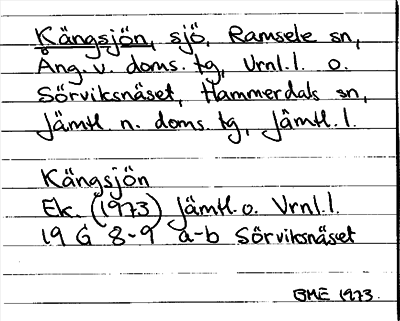 Kängsjön, sjö, Ramsele sn,
Ång. v. doms. tg, Vrnl.l. o.
Sörviksnäset, Hammerdals sn,
Jämtl. n. doms. tg, Jämtl. l.
Kängsjön
Ek. (1973) Jämtl. o. Vrnl.l.
19 G 8-9 a-b Sörviksnäset
BME 1973.